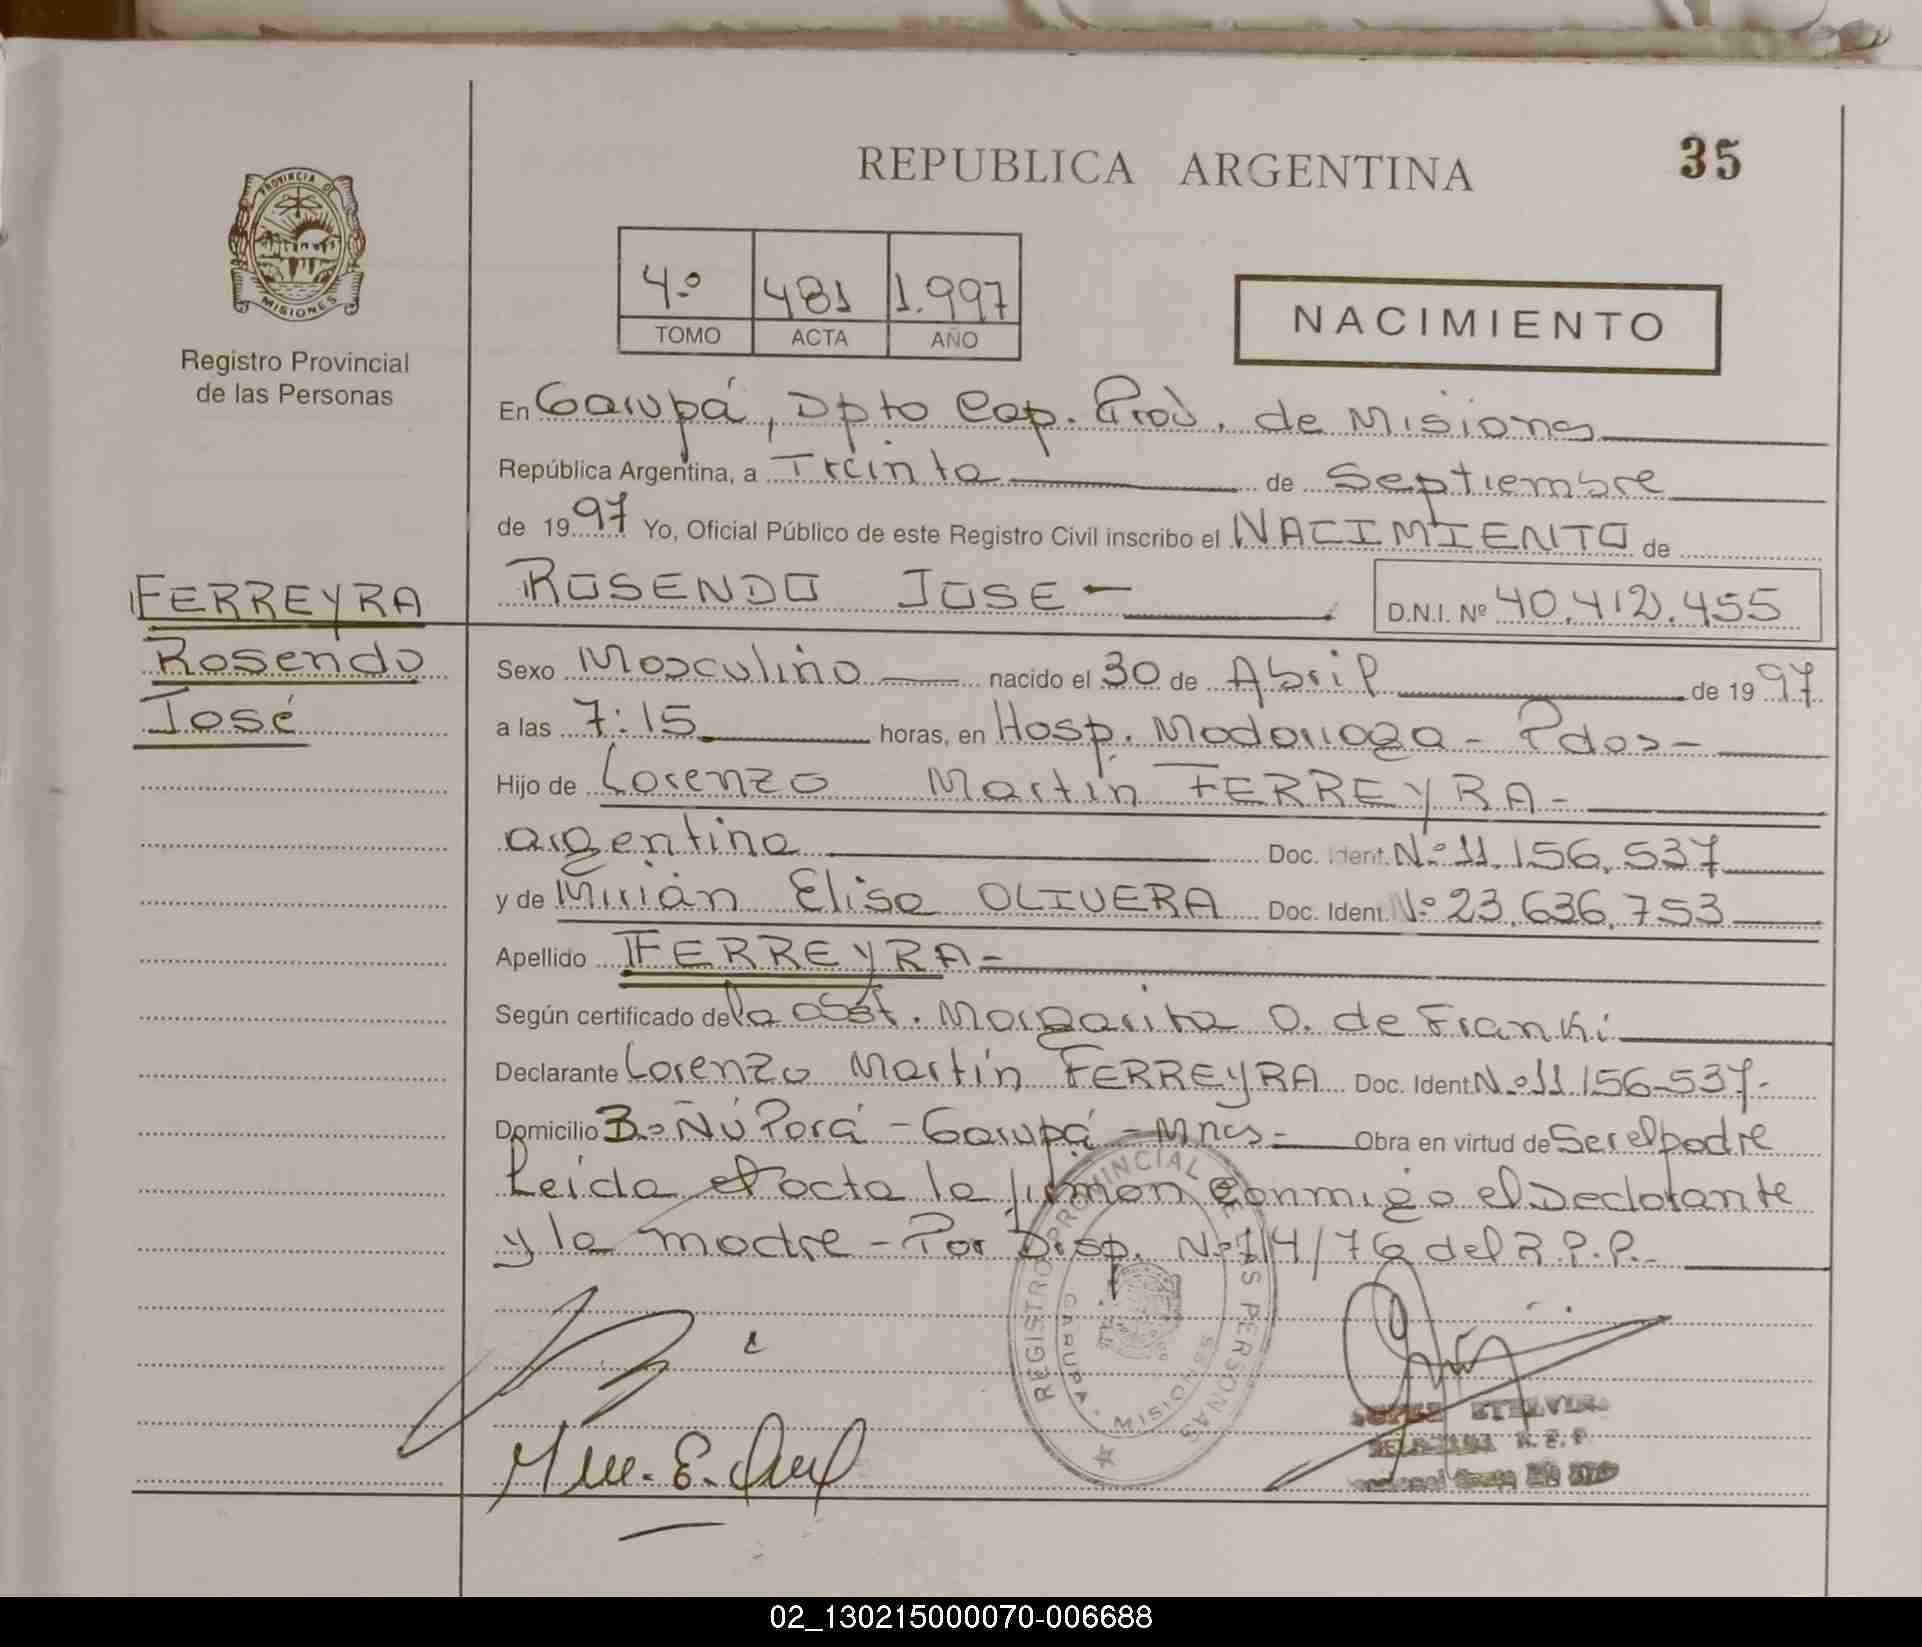 REPUBLICA ARGENTINA
35
PROVINCIA DE
MISIONES
Registro Provincial
de las Personas
4º 481 1.997
TOMO ACTA AÑO
NACIMIENTO
En Garupá, Dpto Cap. Prov. de Misiones
República Argentina, a Treinta de Septiembre
de 1997 Yo, Oficial Público de este Registro Civil inscribo el NACIMIENTO de
ROSENDO JOSE - D.N.I. Nº 40.412.455
FERREYRA
Rosendo
José
Sexo Masculino nacido el 30 de Abril de 1997
a las 7:15 horas, en Hosp. Madariaga - Pdas -
Hijo de Lorenzo Martín FERREYRA -
argentino Doc. Ident. Nº 11.156.537
y de Mirián Elisa OLIVERA Doc. Ident. Nº 23.636.753
Apellido FERREYRA -
Según certificado de la obst. Margarita O. de Franki
Declarante Lorenzo Martín FERREYRA Doc. Ident Nº 11.156.537-
Domicilio Bº Ñú Porá - Garupá - Mnes - Obra en virtud de Ser el padre
Leida el acta la firman conmigo el Declarante
y la madre - Por Disp. Nº 14/76 del R.P.P.
REGISTRO PROVINCIAL DE LAS PERSONAS
GARUPA - MISIONES
02_130215000070-006688